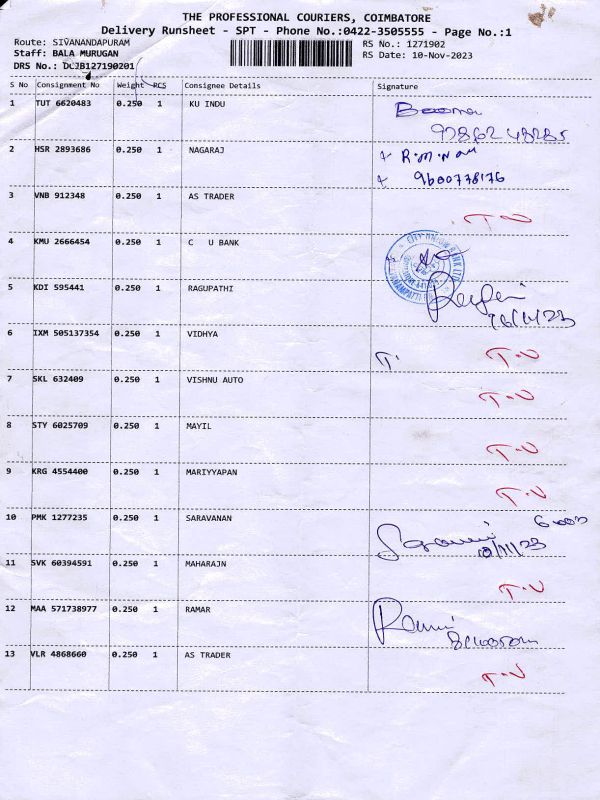 THE PROFESSIONAL COURIERS, COIMBATORE
Delivery Runsheet - SPT - Phone No.:0422-3505555 - Page No.:1
Route: SIVANANDAPURAM RS No.: 1271902
Staff: BALA MURUGAN RS Date: 10-Nov-2023
DRS No.: DCJB127190201
S No Consignment No Weight PCS Consignee Details Signature
1 TUT 6620483 0.250 1 KU INDU
2 HSR 2893686 0.250 1 NAGARAJ
9600778176
3 VNB 912348 0.250 1 AS TRADER
T.N
4 KMU 2666454 0.250 1 C U BANK
5 KDI 595441 0.250 1 RAGUPATHI
6 IXM 505137354 0.250 1 VIDHYA
T. T.N
7 SKL 632409 0.250 1 VISHNU AUTO
T.N
8 STY 6025709 0.250 1 MAYIL
T.N
9 KRG 4554400 0.250 1 MARIYYAPAN
T.N
10 PMK 1277235 0.250 1 SARAVANAN
11 SVK 60394591 0.250 1 MAHARAJN
T.N
12 MAA 571738977 0.250 1 RAMAR
13 VLR 4868660 0.250 1 AS TRADER
T.N